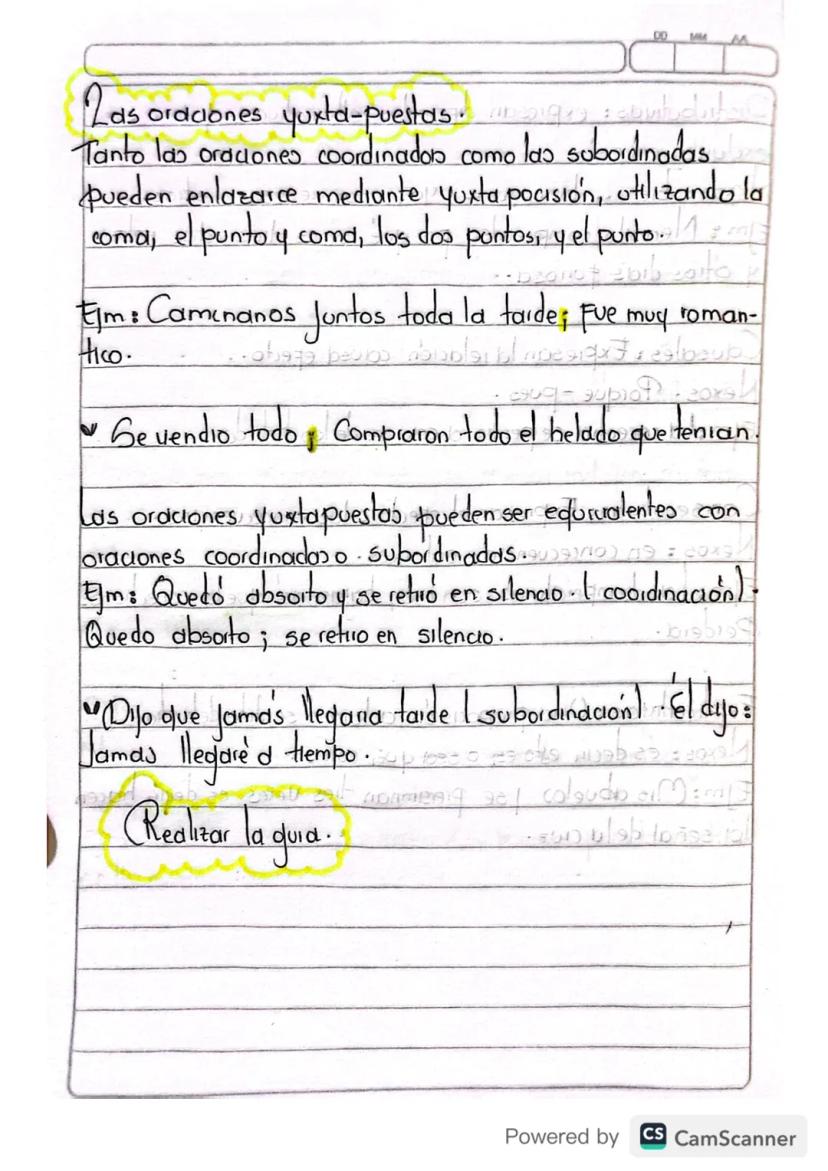 DD MM AA
Las oraciones yuxta-puestas.
Tanto las oraciones coordinadas como las subordinadas
pueden enlazarce mediante yuxta pocisión, utilizando la
coma, el punto y coma, los dos puntos, y el punto.
Ejm: Caminanos Juntos toda la tarde; fue muy roman-
tico.
Se vendio todo; Compraron todo el helado que tenian.
Las oraciones yuxtapuestas pueden ser equivalentes con
oraciones coordinadas o subordinadas.
Ejm: Quedó absorto y se retiró en silencio. (coordinación).
Quedo absorto; se retiro en silencio.
Dijo que jamás llegaria tarde (subordinación). Él dijo:
Jamas llegaré a tiempo.
Realizar la guia.
Powered by CS CamScanner